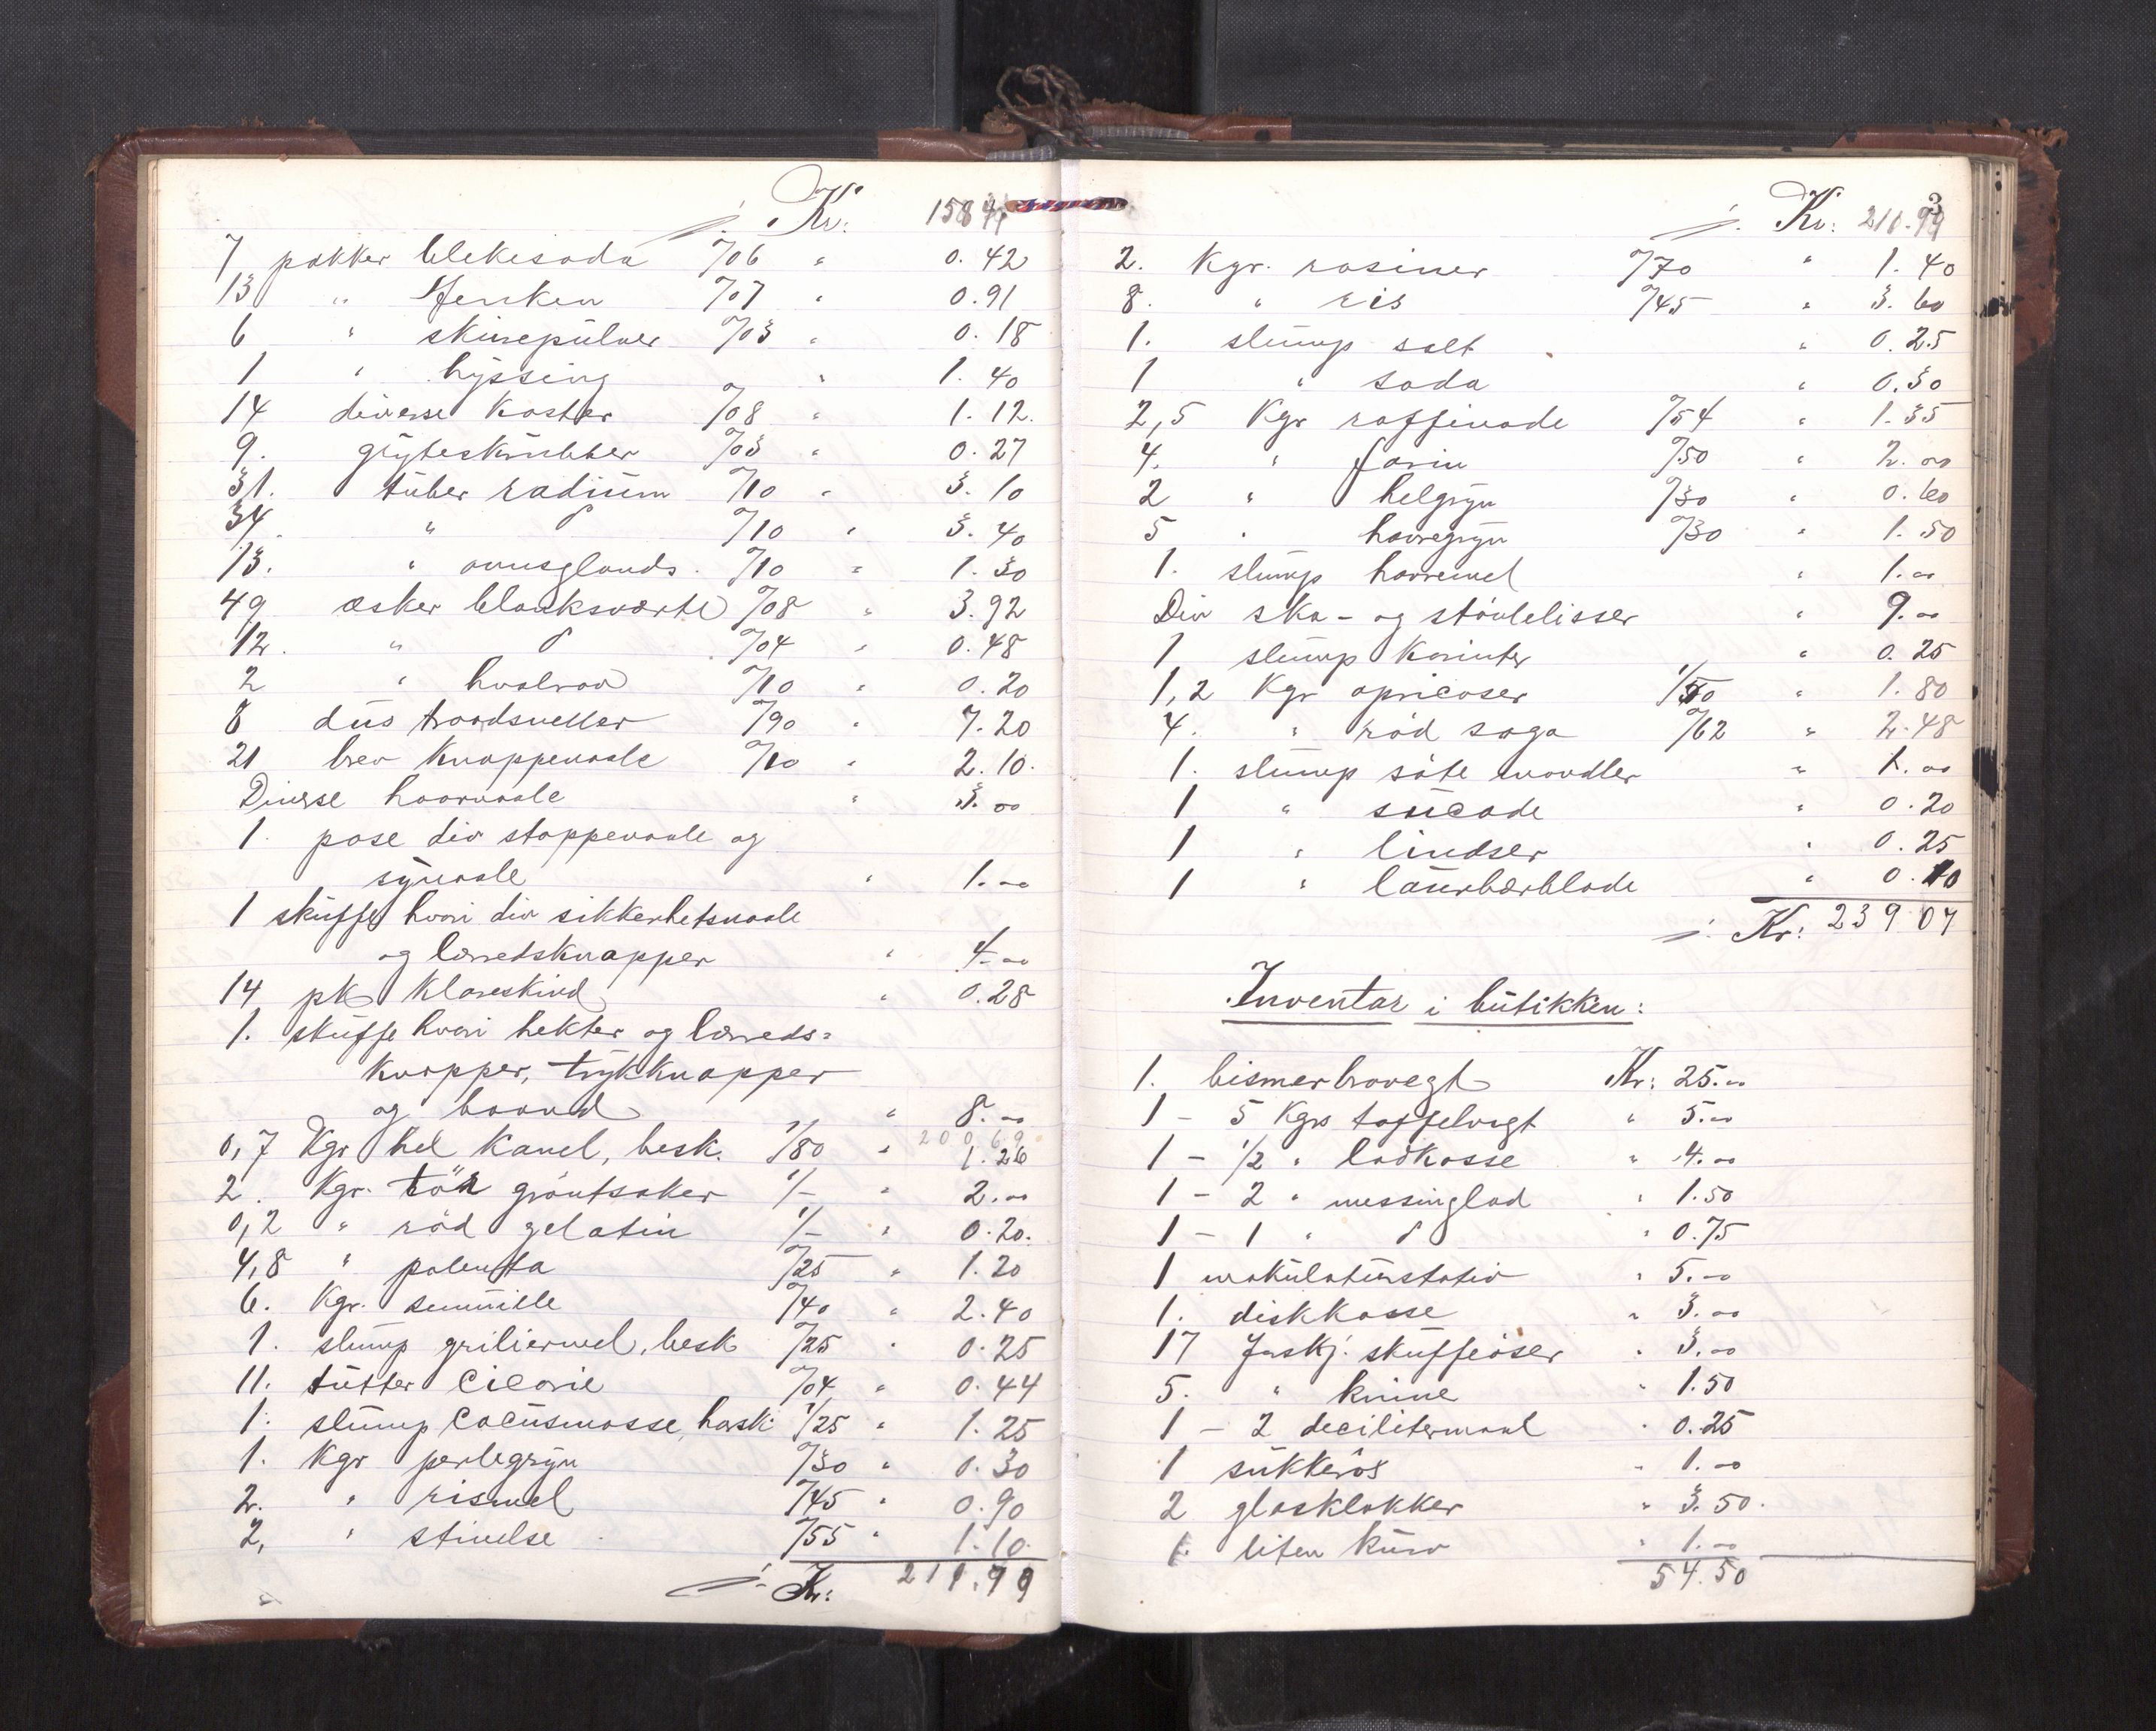 /. Kr: 158.41
7 pakker blekesoda %06 " 0.42
13 " Henken %07 " 0.91
6 " skurepulver %03 " 0.18
1 " hyssing " 1.40
14 diverse koster %08 " 1.12.
9. gryteskrubber %03 " 0.27
31. tuber radium %10 " 3.10
34. " d %10 " 3.40
13. " ovnsglands. %10 " 1.30
49 æsker blanksværte %08 " 3.92
12. " d %04 " 0.48
2 " hvalrav %10 " 0.20
8 dus traadsneller %90 " 7.20
21 brev knappenaale %10 " 2.10.
Diverse haarnaale " 3.00
1. pose div stoppenaale og
synaale " 1.00
1 skuffe hvori div sikkerhetsnaale
og lærredsknapper " 4.00
14 pk klareskind " 0.28
1. skuffe hvori hekter og lærreds=
knapper, trykknapper
og baand " 8.00
200 69
0,7 Kgr hel kanel, besk. 1/80 " 1.26
2. Kgr. tör gröntsaker 1/- " 2.00
0,2 " röd gelatin 1/- " 0.20.
4,8 " polenta %25 " 1.20
6. Kgr. semulle %40 " 2.40
1. slump griliermel, besk %25 " 0.25
11. tutter Cicorie %04 " 0.44
1. slump Cocusmasse, harsk 1/25 " 1.25
1. Kgr perlegryn %30 " 0.30
2. " rismel %45 " 0.90
2, " stivelse %55 " 1.10.
/. Kr: 211.99
3
/. Kr: 210.99
2. Kgr. rosiner %70 " 1.40
8. " ris %45 " 3.60
1. slump salt " 0.25
1 " soda " 0.30
2,5 Kgr raffinade %54 " 1.35
4. " farin %50 " 2.00
2 " helgryn %30 " 0.60
5 " havregryn %30 " 1.50
1. slump havremel " 1.00
Div sko- og stövlelisser " 9.00
1 slump korinter " 0.25
1,2 Kgr apricoser 1/50 " 1.80
4. " röd sago %62 " 2.48
1. slump söte mandler " 1.00
1 " sucade " 0.20
1 " lindser " 0.25
1 " laurbærblade " 0.10
/. Kr: 239 07
Inventar i butikken:
1. bismerbravegt Kr: 25.00
1 - 5 Kgrs taffelvegt " 5.00
1 - 1/2 " lodkasse " 4.00
1 - 2 " messinglod " 1.50
1 - 1 " d " 0.75
1 makulaturstativ " 5.00
1. diskkasse " 3.00
17 forskj. skuffeöser " 3.00
5. " knive " 1.50
1 - 2 decilitermaal " 0.25
1 sukkerös " 1.00
2 glasklokker " 3.50.
1. liten kurv " 1.00
54.50